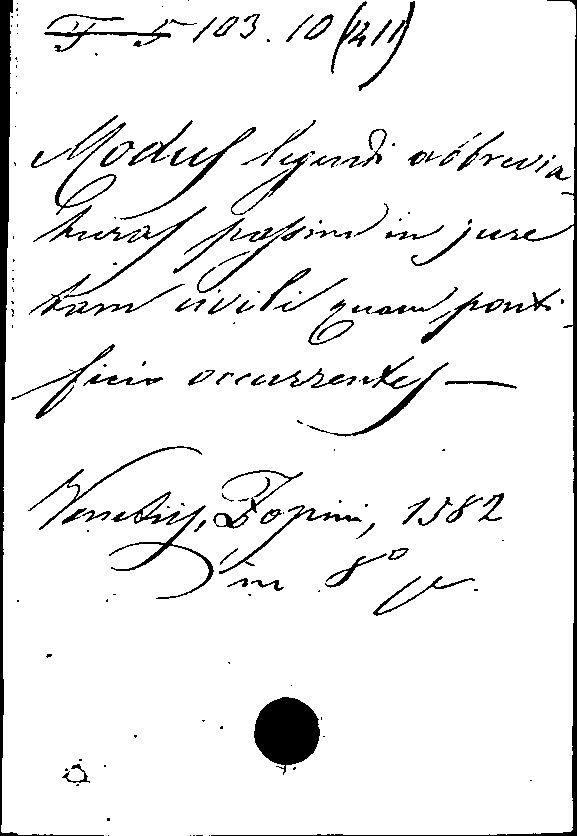 F. 5 103.10 (1411)
Modus legendi abbrevia-
turas passim in jure
tam civili quam ponti-
ficio occurrentes —
Venetiis, Zopini, 1582
in 8°